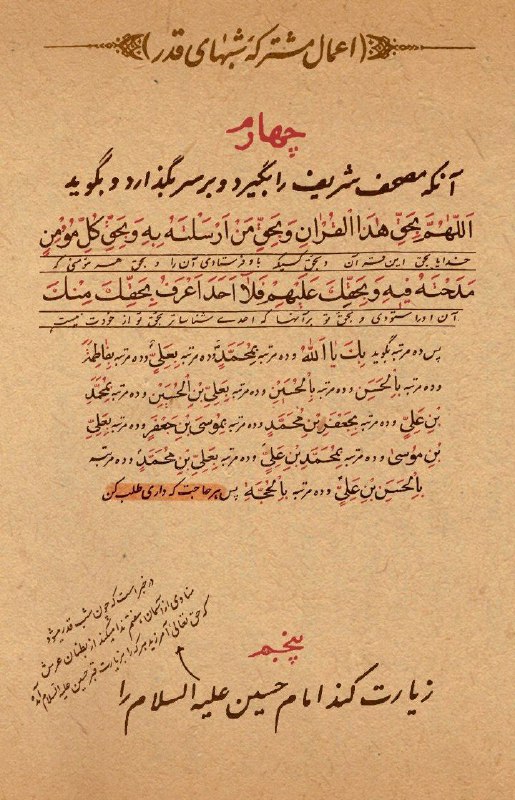 (اعمال مشترکهٔ شبهای قدر)
چهارم
آنکه مصحف شریف را بگیرد و بر سر بگذارد و بگوید
اَللّٰهُمَّ بِحَقِّ هٰذَا الْقُرْاٰنِ وَبِحَقِّ مَنْ اَرْسَلْتَهُ بِهِ وَبِحَقِّ كُلِّ مُؤْمِنٍ
خدایا بحق این قرآن و بحق آنکه با او فرستادی آن را و بحق هر مؤمنی که
مَدَحْتَهُ فِيهِ وَبِحَقِّكَ عَلَيْهِمْ فَلَا اَحَدَ اَعْرَفُ بِحَقِّكَ مِنْكَ
در آن او را ستودی و بحق تو بر آنها که احدی شناساتر بحق تو از خودت نیست
پس ده مرتبه بگوید بِكَ يَا اَللّٰهُ و ده مرتبه بِمُحَمَّدٍ و ده مرتبه بِعَلِيٍّ و ده مرتبه بِفَاطِمَةَ
و ده مرتبه بِالْحَسَنِ و ده مرتبه بِالْحُسَيْنِ و ده مرتبه بِعَلِيِّ بْنِ الْحُسَيْنِ و ده مرتبه بِمُحَمَّدِ
بْنِ عَلِيٍّ و ده مرتبه بِجَعْفَرِ بْنِ مُحَمَّدٍ و ده مرتبه بِمُوسَى بْنِ جَعْفَرٍ و ده مرتبه بِعَلِيِّ
بْنِ مُوسٰى و ده مرتبه بِمُحَمَّدِ بْنِ عَلِيٍّ و ده مرتبه بِعَلِيِّ بْنِ مُحَمَّدٍ و ده مرتبه
بِالْحَسَنِ بْنِ عَلِيٍّ و ده مرتبه بِالْحُجَّةِ پس هر حاجت که داری طلب کن
در خبر است که چون شب قدر میشود
منادی از آسمان هفتم ندا میکند از بطنان عرش
که حق تعالی آمرزید هر که را بزیارت قبر حسین علیه السلام آمده
پنجم
زیارت کند امام حسین علیه السلام را